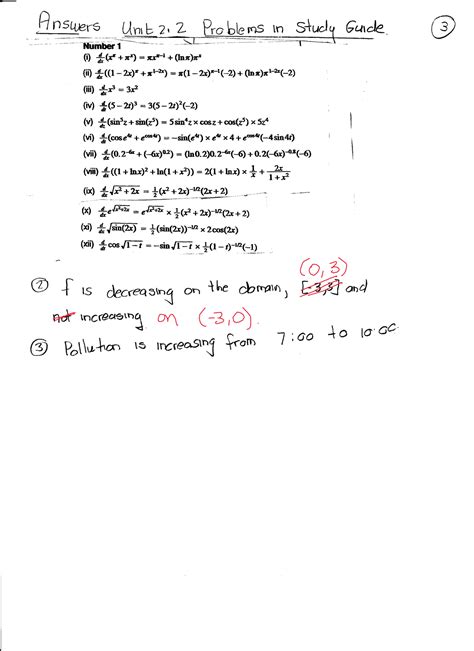 Answers Unit 2.2 Problems in Study Guide. 3
Number 1
(i) d/dx(x^π + π^x) = πx^(π−1) + (ln π)π^x
(ii) d/dx((1 − 2x)^π + π^(1−2x)) = π(1 − 2x)^(π−1)(−2) + (ln π)π^(1−2x)(−2)
(iii) d/dx x³ = 3x²
(iv) (5 − 2t)³ = 3(5 − 2t)²(−2)
(v) (sin⁵z + sin(z⁵) = 5 sin⁴z × cos z + cos(z⁵) × 5z⁴
(vi) (cos e^4t + e^cos4t) = −sin(e^4t) × e^4t × 4 + e^cos4t(−4 sin 4t)
(vii) (0.2^−6x + (−6x)^0.2) = (ln 0.2)0.2^−6x(−6) + 0.2(−6x)^−0.8(−6)
(viii) d/dx((1 + ln x)² + ln(1 + x²)) = 2(1 + ln x) × 1/x + 2x/(1 + x²)
(ix) d/dx √(x² + 2x) = ½(x² + 2x)^−1/2(2x + 2)
(x) d/dx e^√(x²+2x) = e^√(x²+2x) × ½(x² + 2x)^−1/2(2x + 2)
(xi) d/dx √sin(2x) = ½(sin(2x))^−1/2 × 2cos(2x)
(xii) cos √(1 − t) = −sin √(1 − t) × ½(1 − t)^−1/2(−1)
(0, 3)
② f is decreasing on the domain, [-3,3] and
not increasing on (-3,0).
③ Pollution is increasing from 7:00 to 10:00